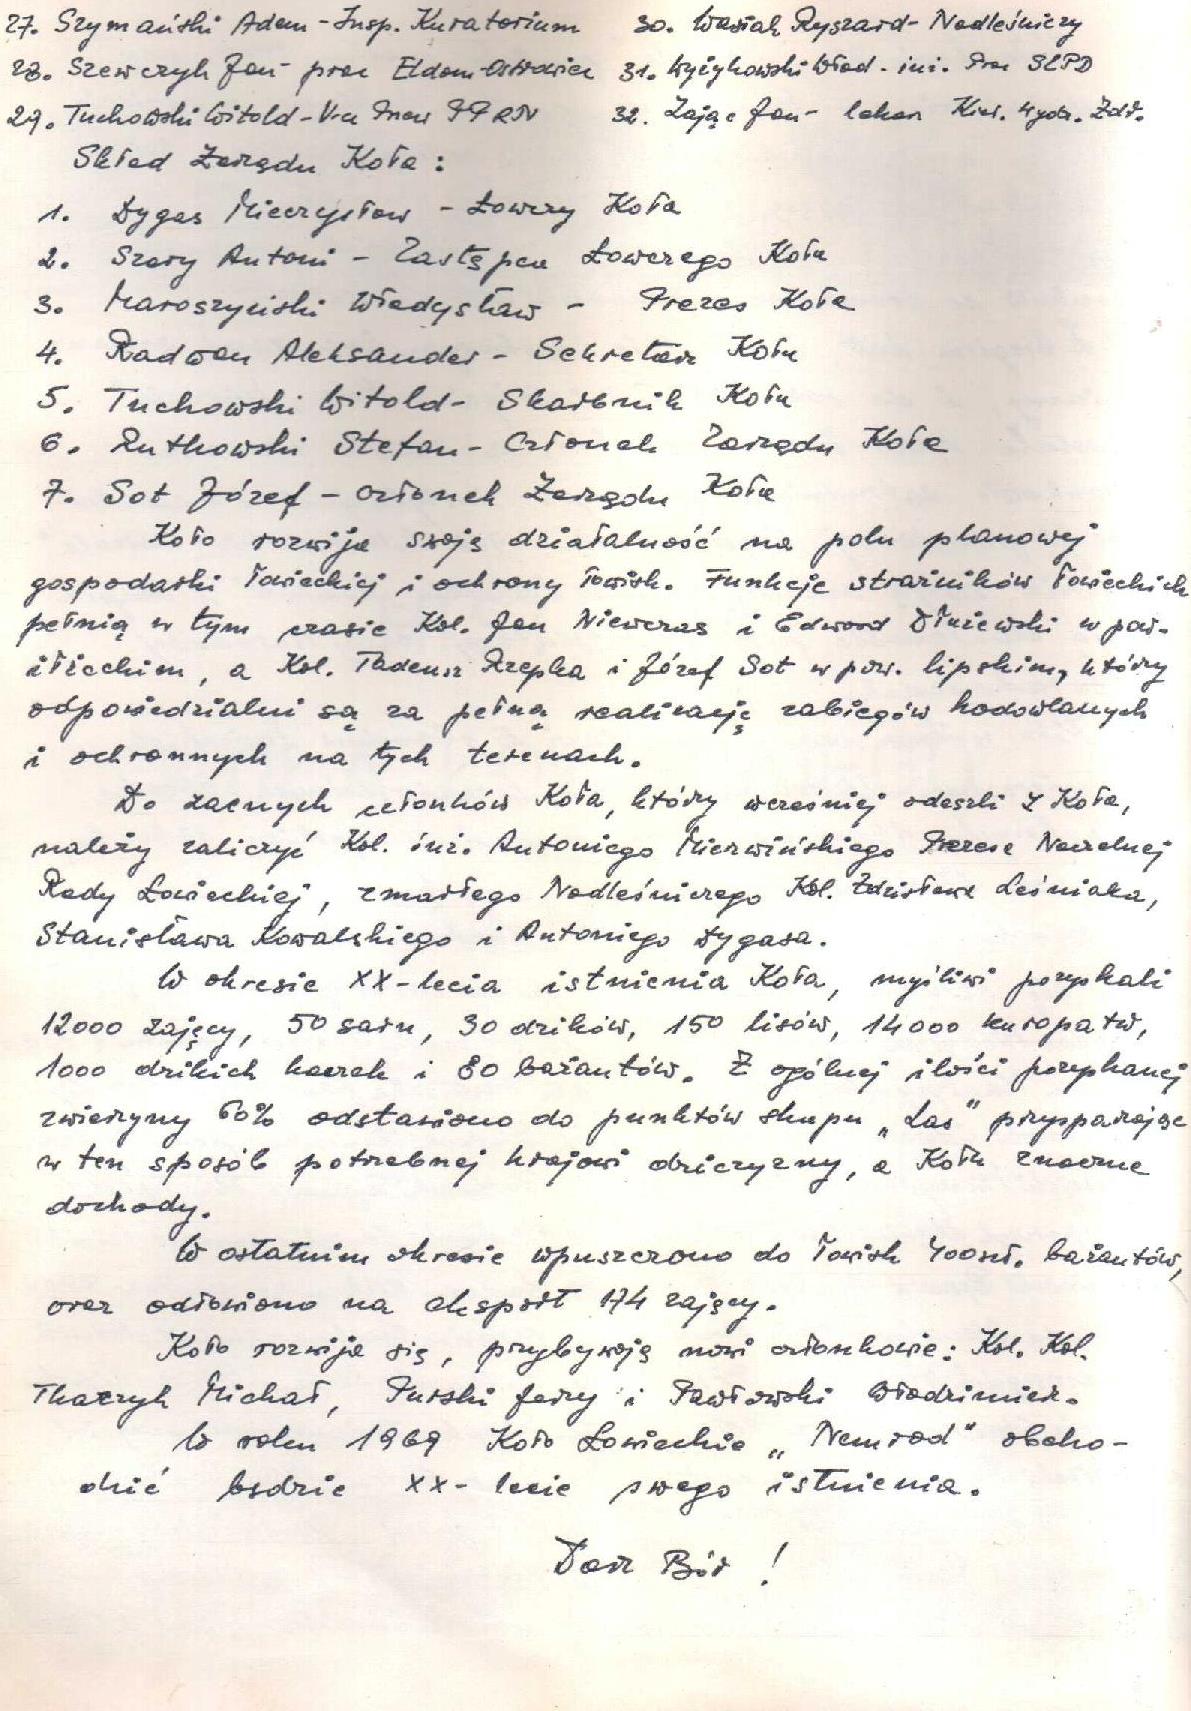 27. Szymański Adam - Insp. Kuratorium
30. Wasiak Ryszard - Nadleśniczy
28. Szewczyk Jan - prac Eldom-Ostrowiec
31. Wyżykowski Wład. - inż. SLPD
29. Tuchowski Witold - PPRN
32. Zając Jan - lekarz Kier. Wydz. Zdr.
Skład Zarządu Koła :
1. Dygas Mieczysław - Łowczy Koła
2. Szary Antoni - Zastępca Łowczego Koła
3. Maroszyński Władysław - Prezes Koła
4. Radwan Aleksander - Sekretarz Koła
5. Tuchowski Witold - Skarbnik Koła
6. Rutkowski Stefan - Członek Zarządu Koła
7. Sot Józef - członek Zarządu Koła
Koło rozwija swoją działalność na polu planowej
gospodarki łowieckiej i ochrony łowisk. Funkcje strażników łowieckich
pełnią w tym czasie Kol. Jan Niewczas i Edward Dłużewski w pow.
iłżeckim, a Kol. Tadeusz Rzepka i Józef Sot w pow. lipskim, którzy
odpowiedzialni są za pełną realizację zabiegów hodowlanych
i ochronnych na tych terenach.
Do zacnych członków Koła, którzy wcześniej odeszli z Koła,
należy zaliczyć Kol. inż. Antoniego Mierwińskiego Prezesa Naczelnej
Rady Łowieckiej, zmarłego Nadleśniczego Kol. Zdzisława Leśniaka,
Stanisława Kowalskiego i Antoniego Dygasa.
W okresie XX-lecia istnienia Koła, myśliwi pozyskali
12000 zajęcy, 50 sarn, 30 dzików, 150 lisów, 14000 kuropatw,
1000 dzikich kaczek i 80 bażantów. Z ogólnej ilości pozyskanej
zwierzyny 60% odstawiono do punktów skupu „Las" przysparzając
w ten sposób potrzebnej krajowi dziczyzny, a Kołu znaczne
dochody.
W ostatnim okresie wpuszczono do łowisk 400szt. bażantów,
oraz odłowiono na eksport 174 zajęcy.
Koło rozwija się, przybywają nowi członkowie: Kol. Kol.
Tkaczyk Michał, Purski Jerzy i Pawłowski Włodzimierz.
W roku 1969 Koło Łowieckie „Nemrod" obcho-
dzić będzie XX-lecie swego istnienia.
Darz Bór !